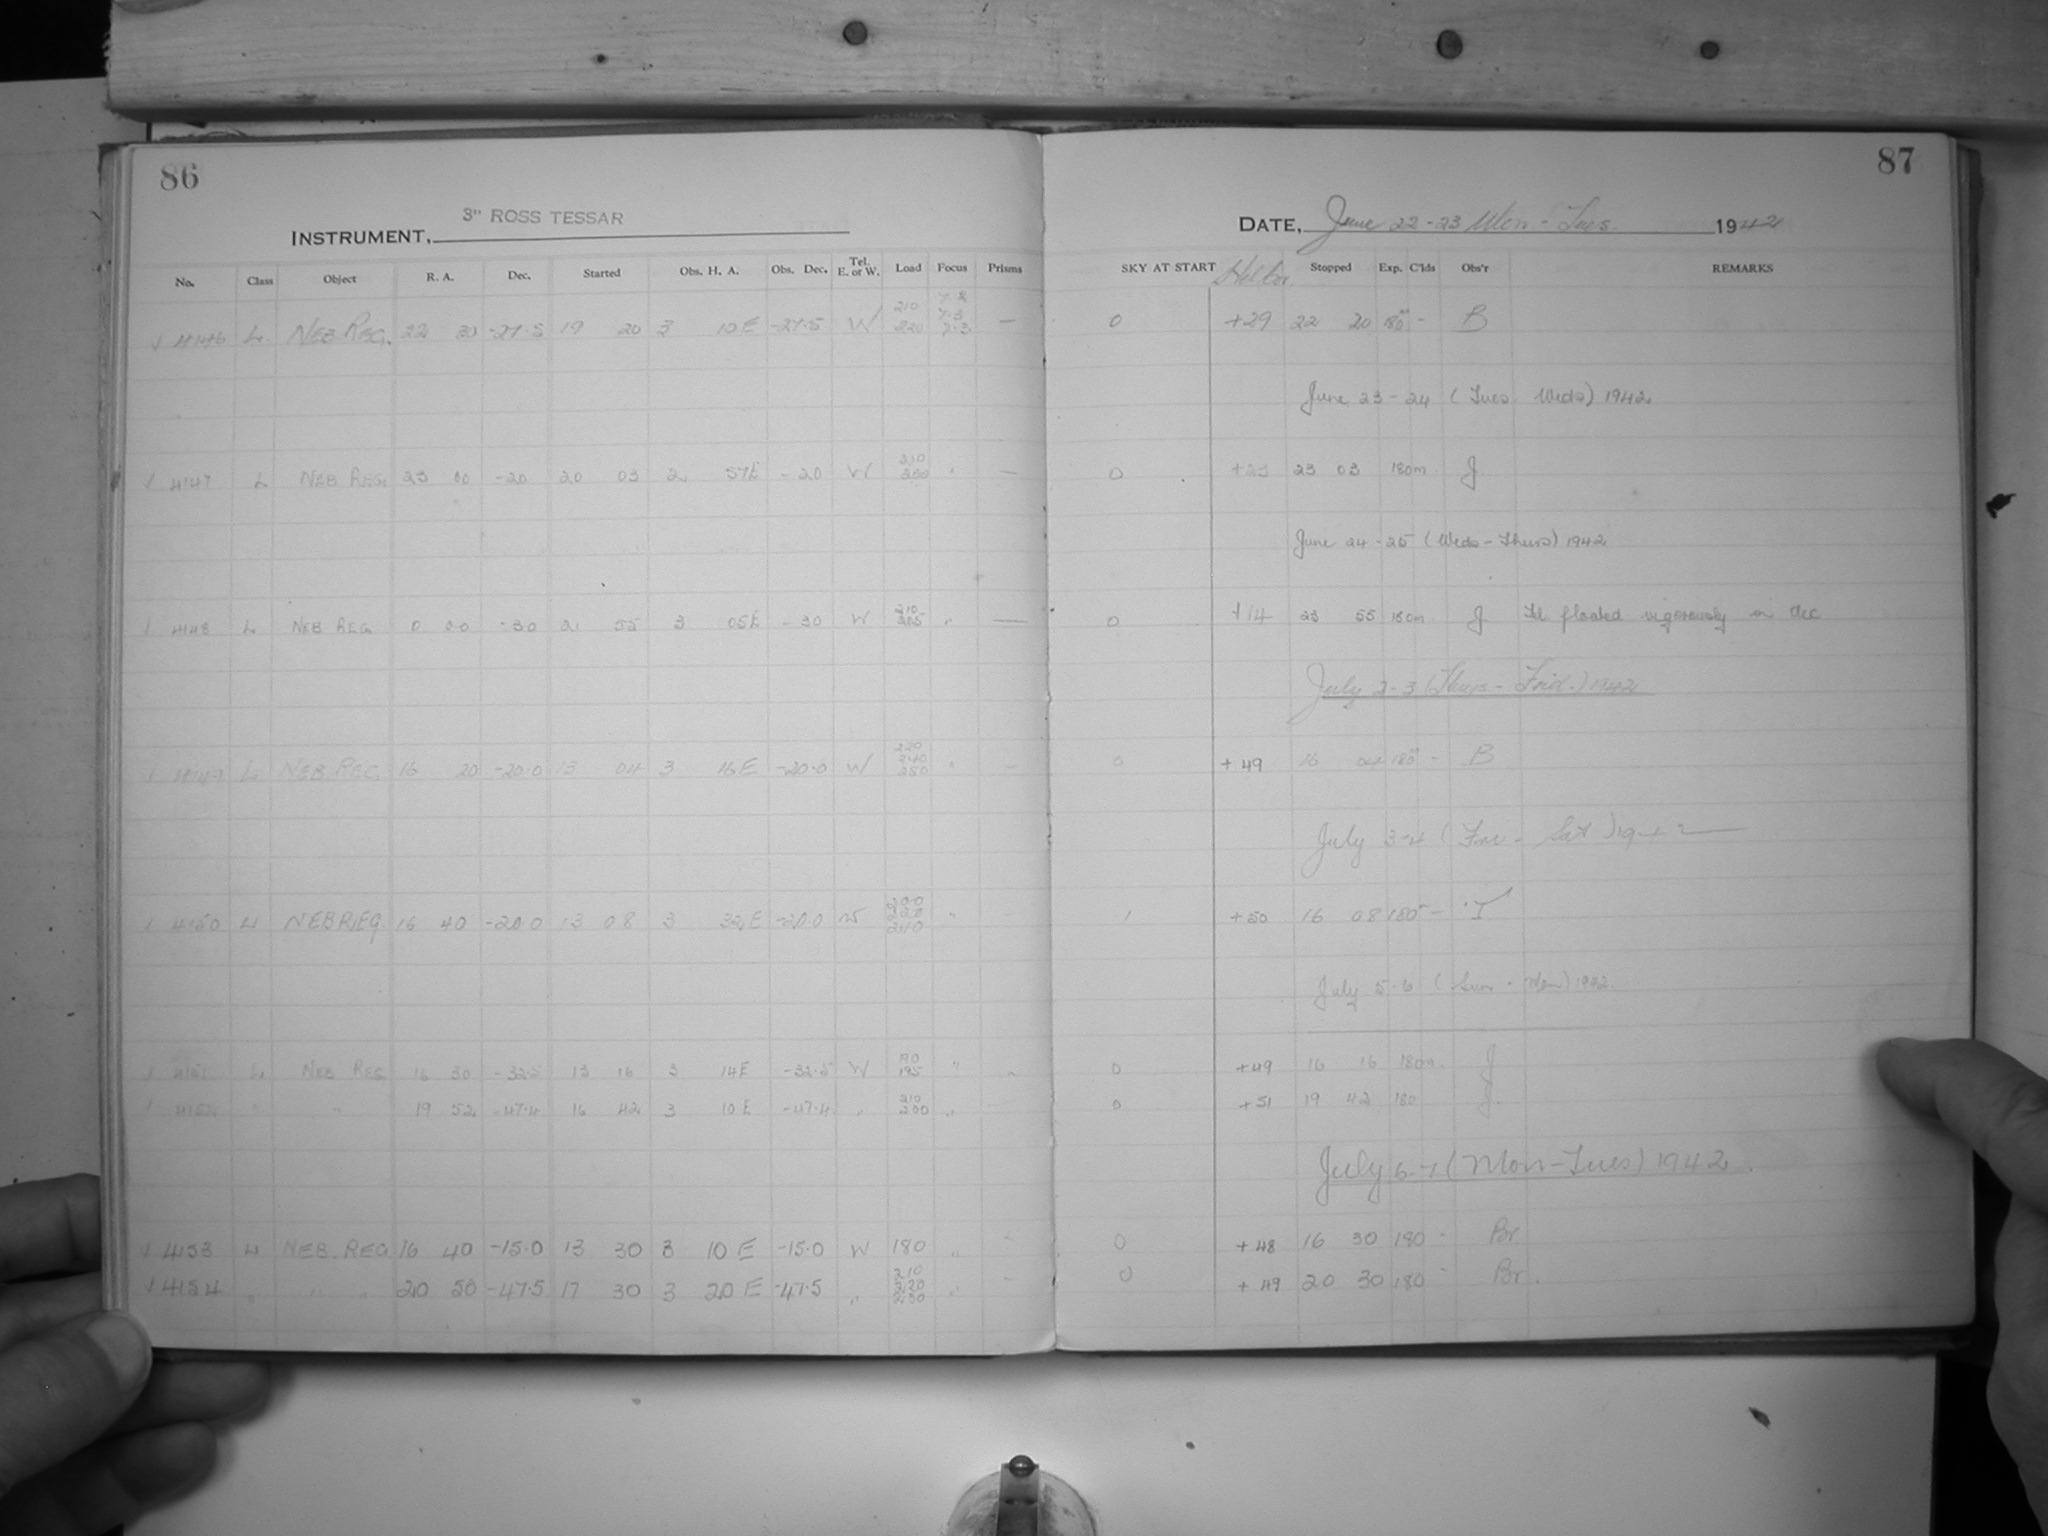 86
3" ROSS TESSAR
INSTRUMENT,
No. Class Object R. A. Dec. Started Obs. H. A. Obs. Dec. Tel. E. or W. Load Focus Prisms
√ 4146 L NEB. REG. 22 30 -27.5 19 20 3 10 E -27.5 W 210 220 7.3 7.3 —
√ 4147 L NEB REG. 23 00 -20 20 03 2 57E -20 W 210 200 " —
√ 4148 L NEB REG 0 00 -30 21 55 3 05E -30 W 210 205 " —
√ 4149 L NEB REG 16 20 -20.0 13 04 3 16 E -20.0 W 220 240 250 " —
√ 4150 L NEB REG. 16 40 -20.0 13 08 3 32 E -20.0 W 200 220 210 " -
√ 4151 L NEB REG 16 30 -32.5 13 16 3 14E -32.5 W 190 195 "
√ 4152 " " 19 52 -47.4 16 42 3 10 E -47.4 " 210 200 "
√ 4153 L NEB. REG 16 40 -15.0 13 30 3 10 E -15.0 W 180 " -
√ 4154 " " " 20 50 -47.5 17 30 3 20 E -47.5 " 210 220 230 " -
87
DATE, June 22-23 Mon - Tues. 1942
SKY AT START Stopped Exp. C'lds Obs'r REMARKS
0 +29 22 20 180m - B
June 23-24 (Tues Weds) 1942
0 +23 23 03 180m J
June 24-25 (Weds-Thurs) 1942
0 +14 23 55 180m J Tel floated vigorously in dec
July 2-3 (Thurs - Frid.) 1942
0 +49 16 04 180m - B
July 3-4 (Fri - Sat) 1942
1 +50 16 08 180 -
July 5-6 (Sun - Mon) 1942
0 +49 16 16 180m. J
0 +51 19 42 180 J.
July 6-7 (Mon-Tues) 1942.
0 +48 16 30 180 - Br
0 +49 20 30 180 - Br.